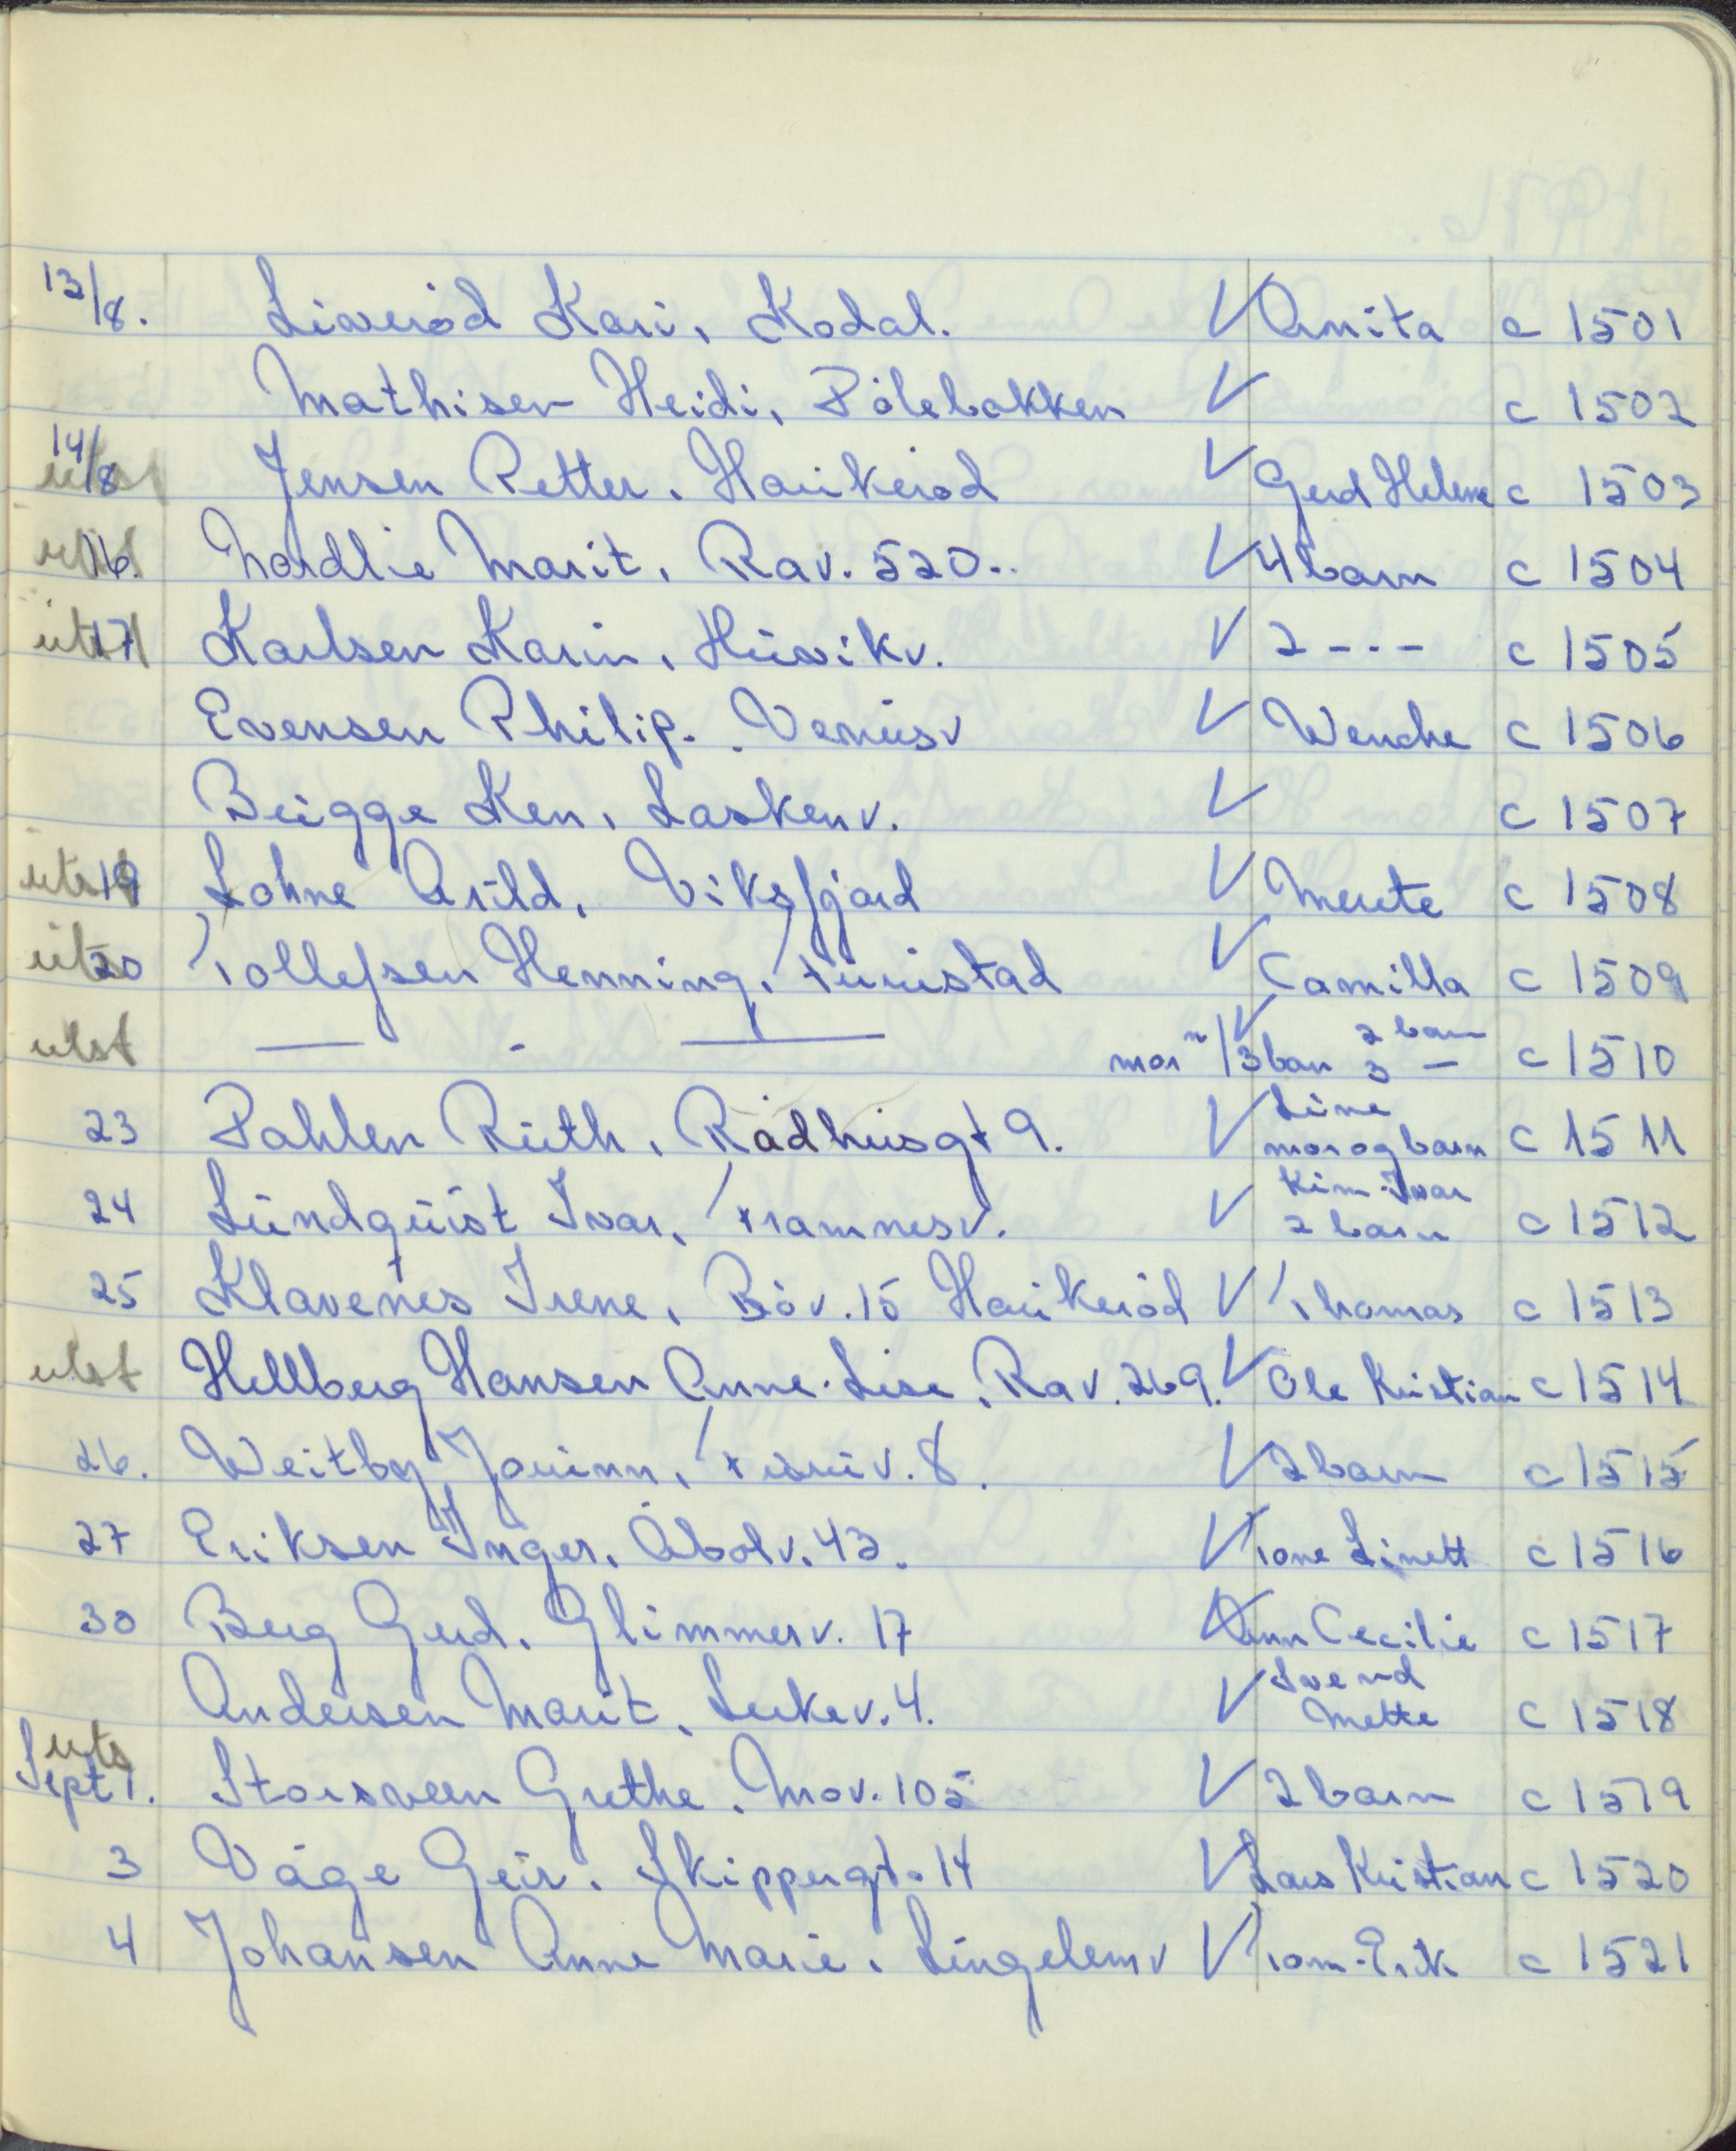 13/8. Liverød Kari, Kodal. V Anita c 1501
Mathisen Heidi, Pølebakken V c 1502
14/8 utst Jensen Petter. Haukerød V Gerd Helene c 1503
16. utst Nordlie Marit, Rav. 520.. V 4 barn c 1504
17 utst Karlsen Karin, Husvikv. V 2 - - - c 1505
Evensen Philip. Venusv V Wenche c 1506
Bugge Ken, Laskenv. V c 1507
19 utst Lohne Arild, Viksfjord V Merete c 1508
20 utst Tollefsen Henning, Furustad V Camilla c 1509
utst — - — mor m/3 barn V 2 barn
3 — c 1510
23 Pahlen Ruth, Rådhusgt 9. V Line
mor og barn c 1511
24 Lundquist Ivar, Framnesv. V Kim-Ivar
2 barn c 1512
25 Klavenes Irene, Bøv. 15 Haukerød V Thomas c 1513
utst Hellberg Hansen Anne-Lise, Rav. 269. V Ole Kristian c 1514
26. Weitby Jorunn, V. 8. V 2 barn c 1515
27 Eriksen Inger, Åbolv. 43. V Tone Linett c 1516
30 Berg Gerd, Glimmerv. 17 V Ann Cecilie c 1517
Andersen Marit, Lerkev. 4. V Svend
Mette c 1518
uts
Sept 1. Storsveen Grethe. Mov. 105 V 2 barn c 1519
3 Våge Geir. Skippergt. 14 V Lars Kristian c 1520
4 Johansen Anne Marie. Lingelemv V Tom-Erik c 1521